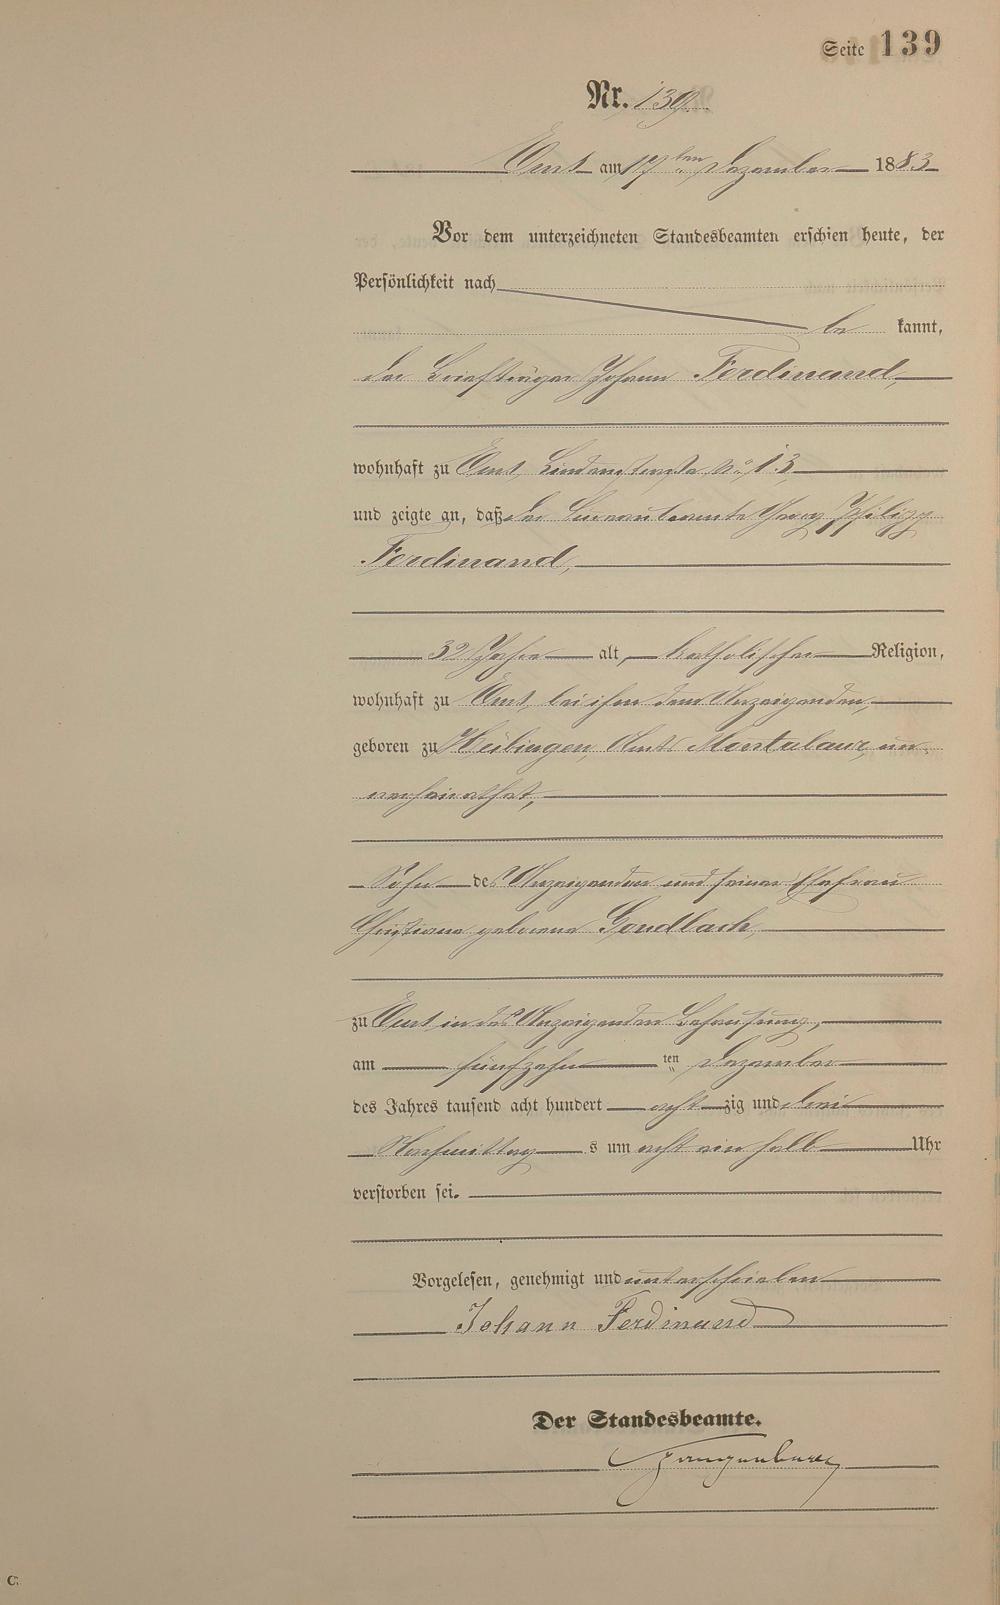 Seite 139
Nr. 139
Ems am 17ten Dezember 1883
Vor dem unterzeichneten Standesbeamten erschien heute, der
Persönlichkeit nach
be kannt,
der Briefträger Johann Ferdinand,
wohnhaft zu Ems, Lindenstraße No 13
und zeigte an, daß der Bureaubeamte Georg Philipp
Ferdinand,
32 Jahre alt, katholischer Religion,
wohnhaft zu Ems, bei ihm dem Anzeigenden,
geboren zu Heilingen, Amts Montabaur, un-
verheirathet,
Sohn des Anzeigenden und seiner Ehefrau
Christiane geborene
zu Ems in des Anzeigenden Behausung,
am fünfzehn ten Dezember
des Jahres tausend acht hundert acht zig und drei
Nachmittag s um acht ein halb Uhr
verstorben sei.
Vorgelesen, genehmigt und unterschrieben
Johann Ferdinand
Der Standesbeamte.
C.